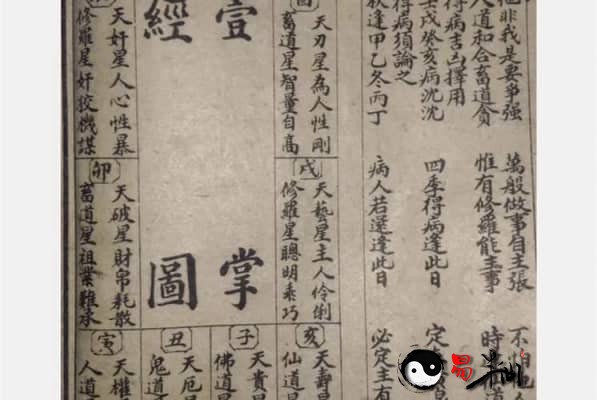 非我是要爭强
萬般做事自主張
不怕
人道和合畜道貪
惟有修羅能主事
時
道
得病吉凶擇用
壬戌癸亥病沈沈
四季得病逢此日
定
得病須論之
秋逢甲乙冬丙丁
病人若還逢此日
必定主有
天刃星為人性剛
畜道星智量自高
戌
天藝星主人伶俐
修羅星聰明乖巧
亥
天壽星
仙道星
壹掌
經圖
子
天貴星
佛道星
丑
天厄星
鬼道星
天奸星人心性暴
修羅星奸狡機謀
卯
天破星財帛耗散
畜道星祖業難承
寅
天權
人道
易